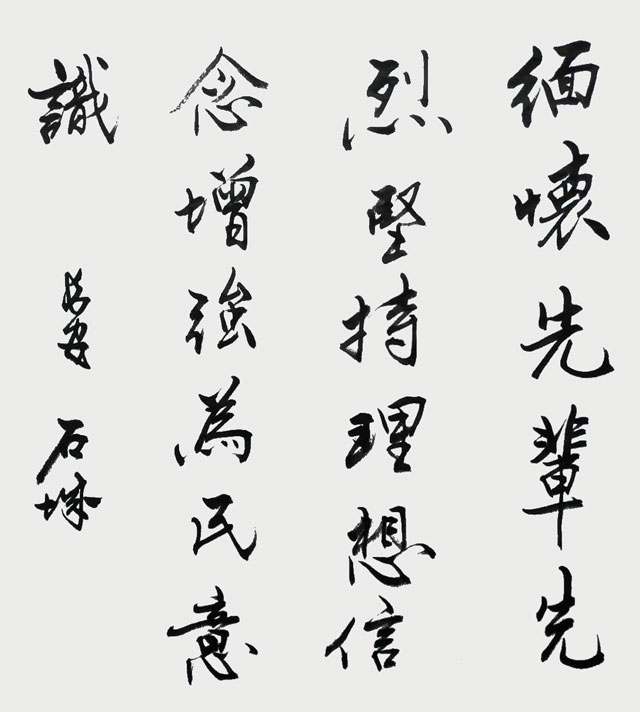 緬懷先輩先
烈堅持理想信
念增強為民意
識 長安 石城